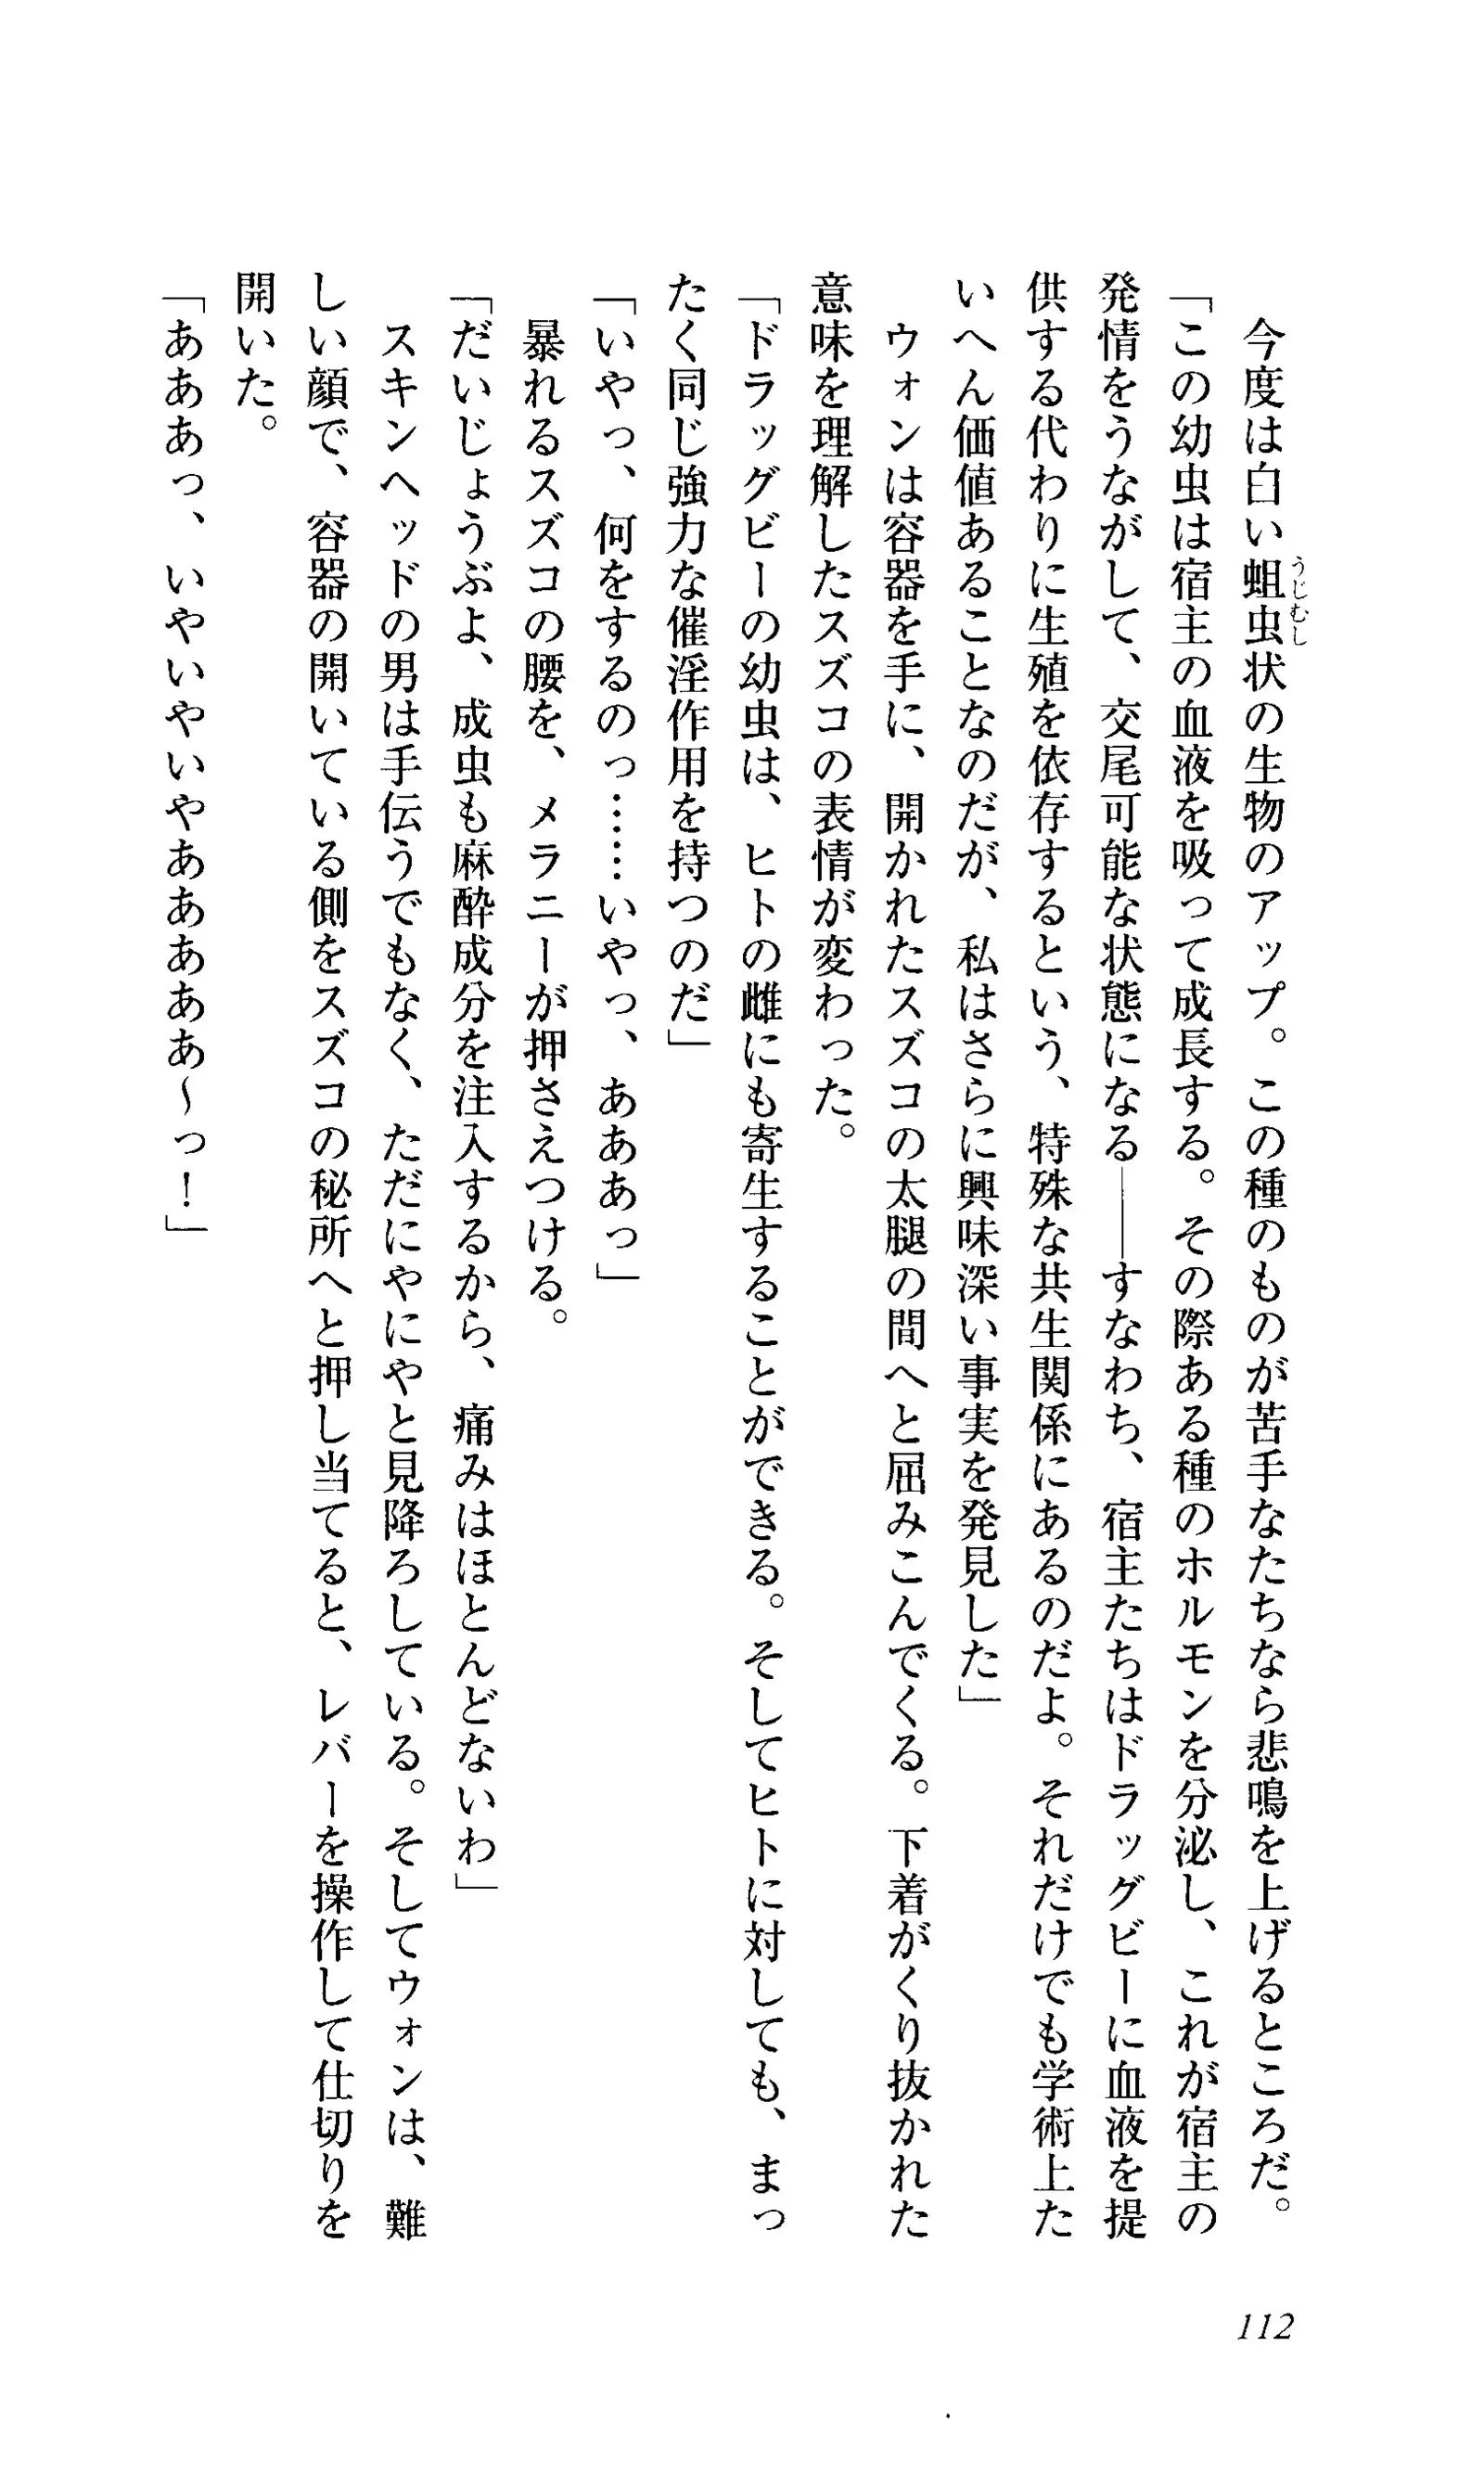 今度は白い蛆虫状の生物のアップ。この種のものが苦手なたちなら悲鳴を上げるところだ。
うじむし
「この幼虫は宿主の血液を吸って成長する。その際ある種のホルモンを分泌し、これが宿主の
発情をうながして、交尾可能な状態になる――すなわち、宿主たちはドラッグビーに血液を提
供する代わりに生殖を依存するという、特殊な共生関係にあるのだよ。それだけでも学術上た
いへん価値あることなのだが、私はさらに興味深い事実を発見した」
ウォンは容器を手に、開かれたスズコの太腿の間へと屈みこんでくる。下着がくり抜かれた
意味を理解したスズコの表情が変わった。
「ドラッグビーの幼虫は、ヒトの雌にも寄生することができる。そしてヒトに対しても、まっ
たく同じ強力な催淫作用を持つのだ」
「いやっ、何をするのっ……いやっ、あああっ」
暴れるスズコの腰を、メラニーが押さえつける。
「だいじょうぶよ、成虫も麻酔成分を注入するから、痛みはほとんどないわ」
スキンヘッドの男は手伝うでもなく、ただにやにやと見降ろしている。そしてウォンは、難
しい顔で、容器の開いている側をスズコの秘所へと押し当てると、レバーを操作して仕切りを
開いた。
「あああっ、いやいやいやあああああ～っ！」
112